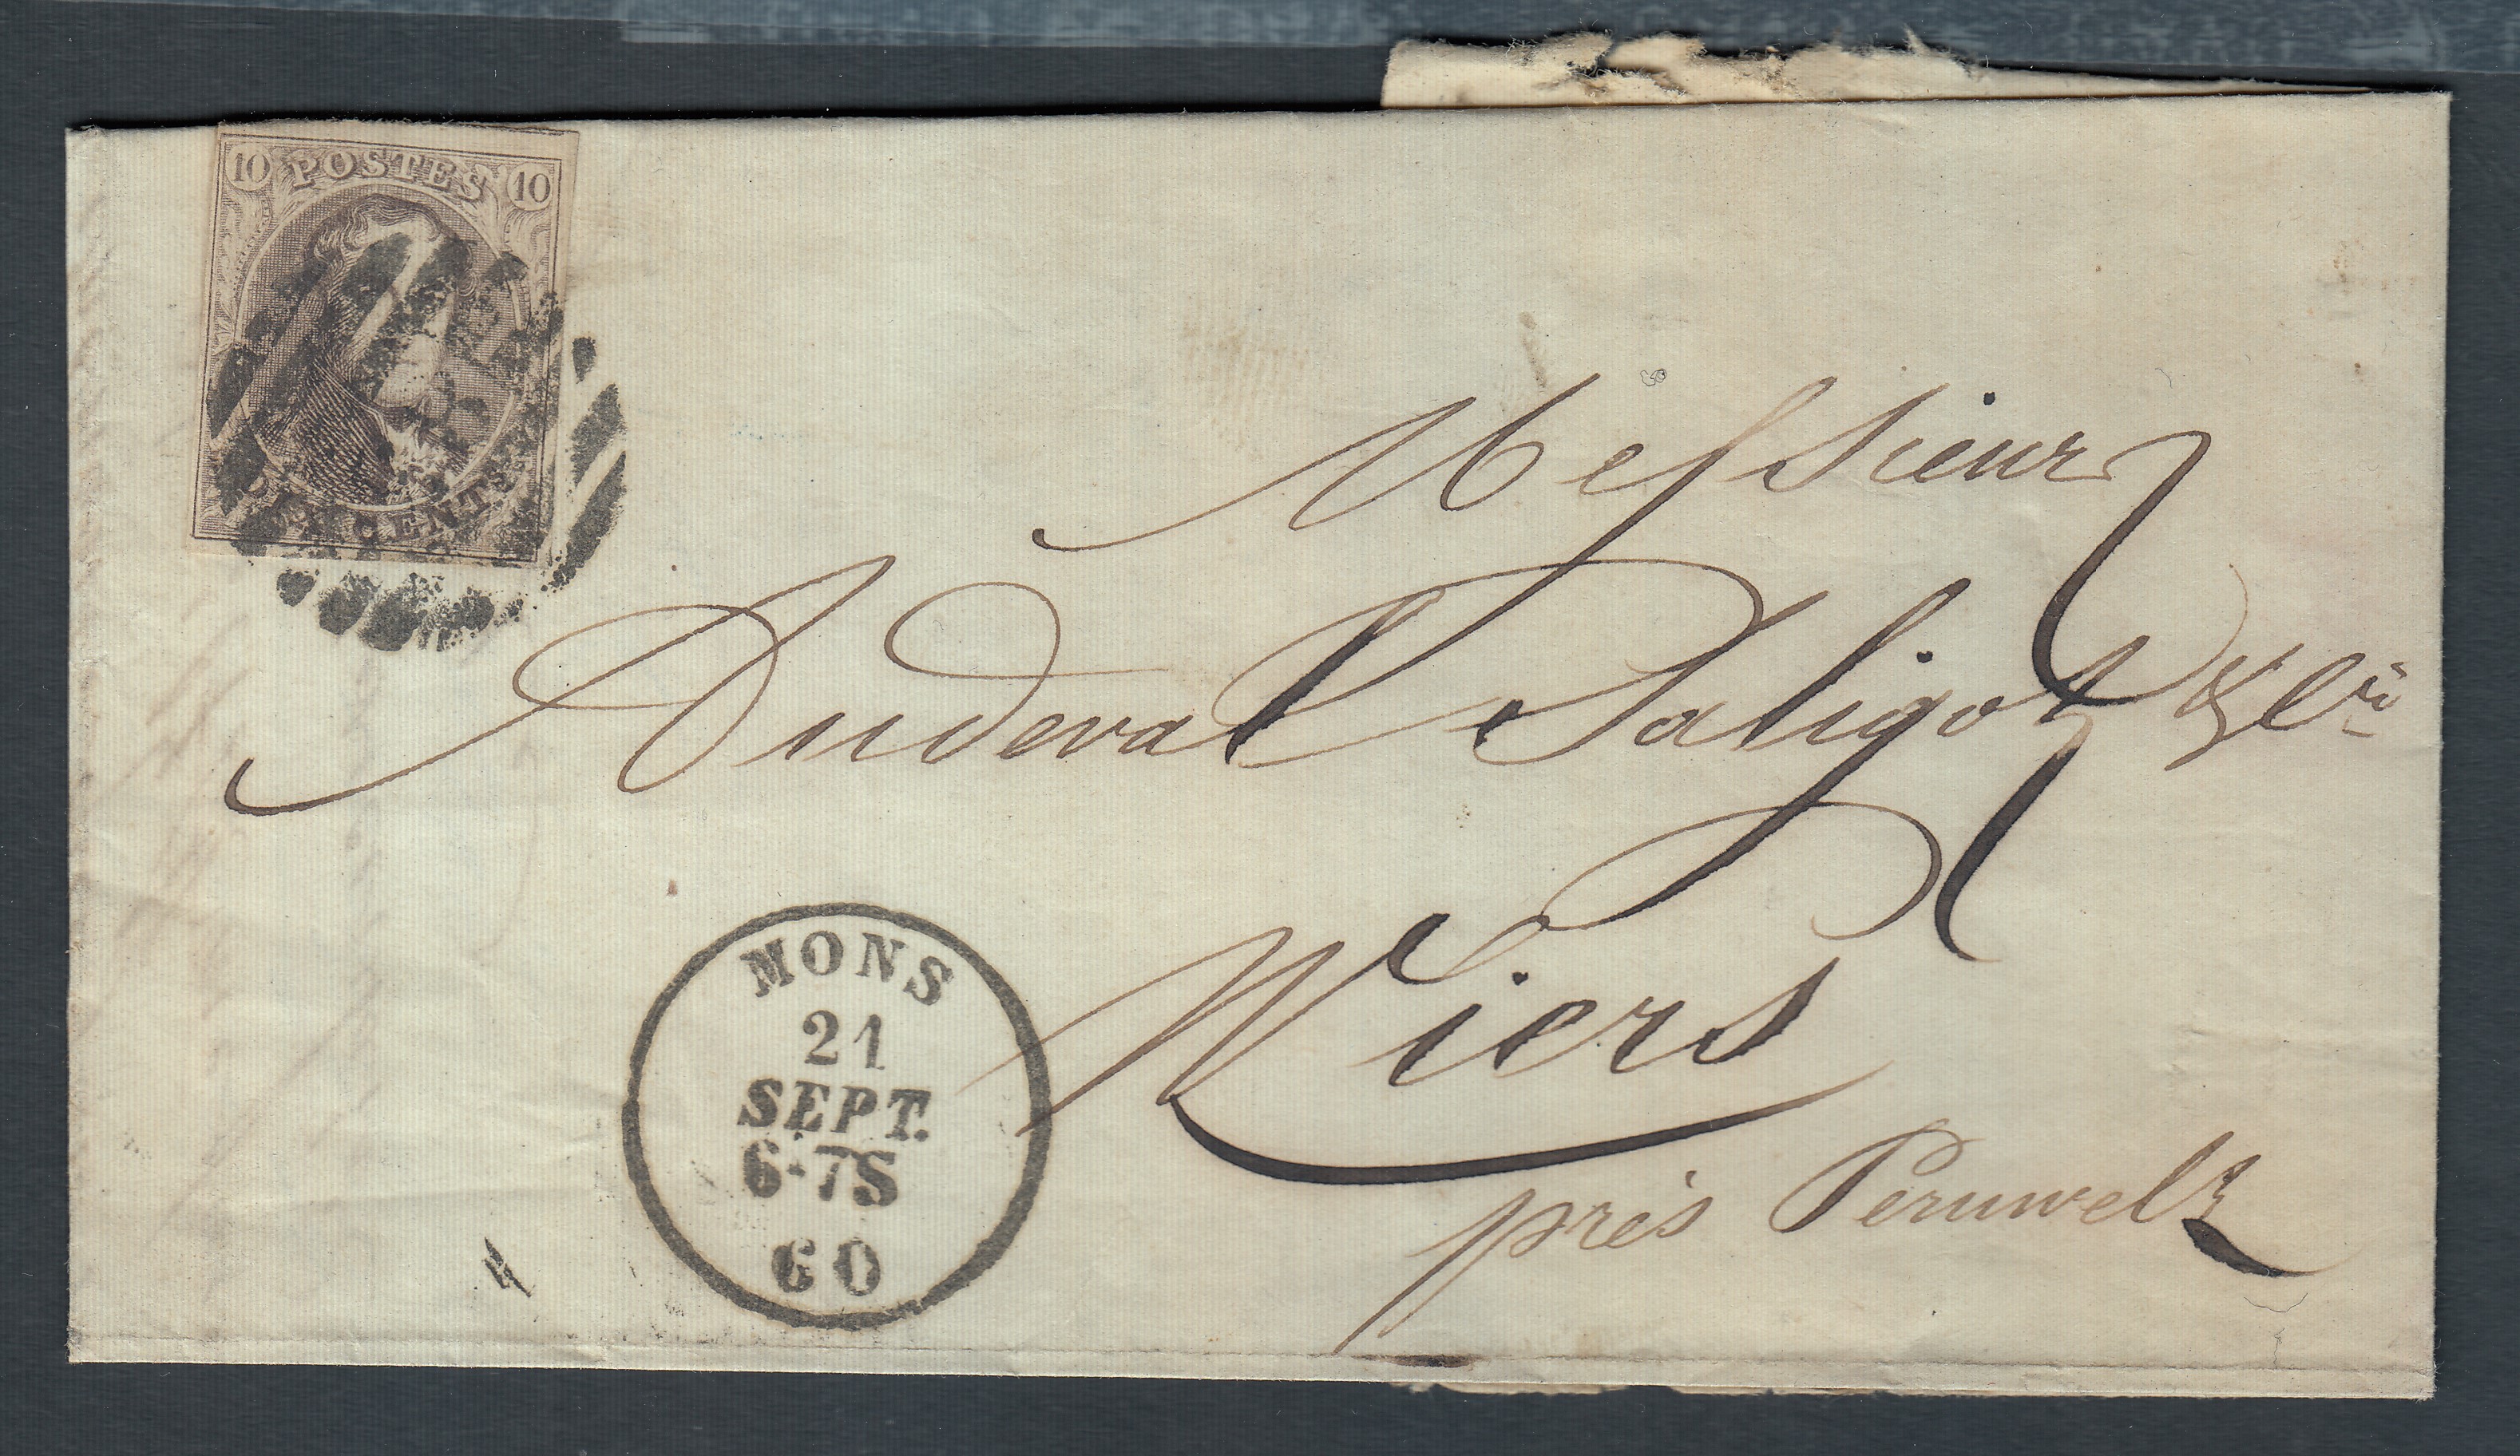 10 POSTES 10
DIX CENTS
Messieurs
Duval Saligot & Cie
Wiers
près Peruwelz
MONS
21
SEPT.
6-7S
60